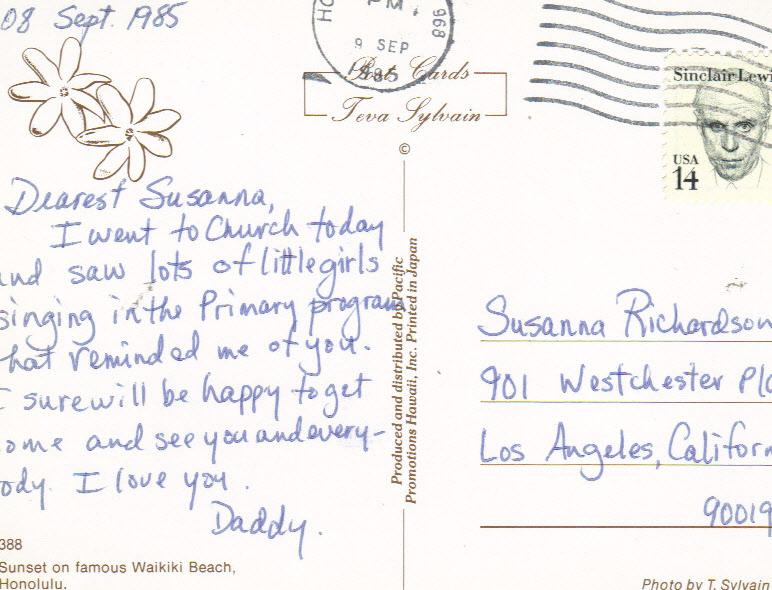 08 Sept. 1985
HO
PM
968
9 SEP
1985
Post Cards
Teva Sylvain
©
Sinclair Lewi
USA
14
Dearest Susanna,
I went to Church today
and saw lots of little girls
singing in the Primary program
hat reminded me of you.
I sure will be happy to get
ome and see you and every-
ody. I love you.
Daddy.
388
Sunset on famous Waikiki Beach,
Honolulu.
Produced and distributed by Pacific
Promotions Hawaii, Inc. Printed in Japan
Susanna Richardson
901 Westchester Pla
Los Angeles, Californ
90019
Photo by T. Sylvain